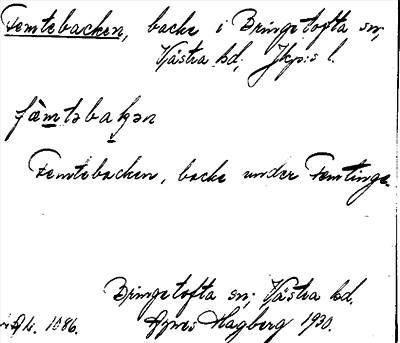 Femtebacken, backe i Bringetofta sn;
Västra hd; Jkp:s l.
fæ̀mtəbakən
Femtebacken, backe under Femtinge.
Bringetofta sn; Västra hd.
1086. Agnes Hagberg 1930.